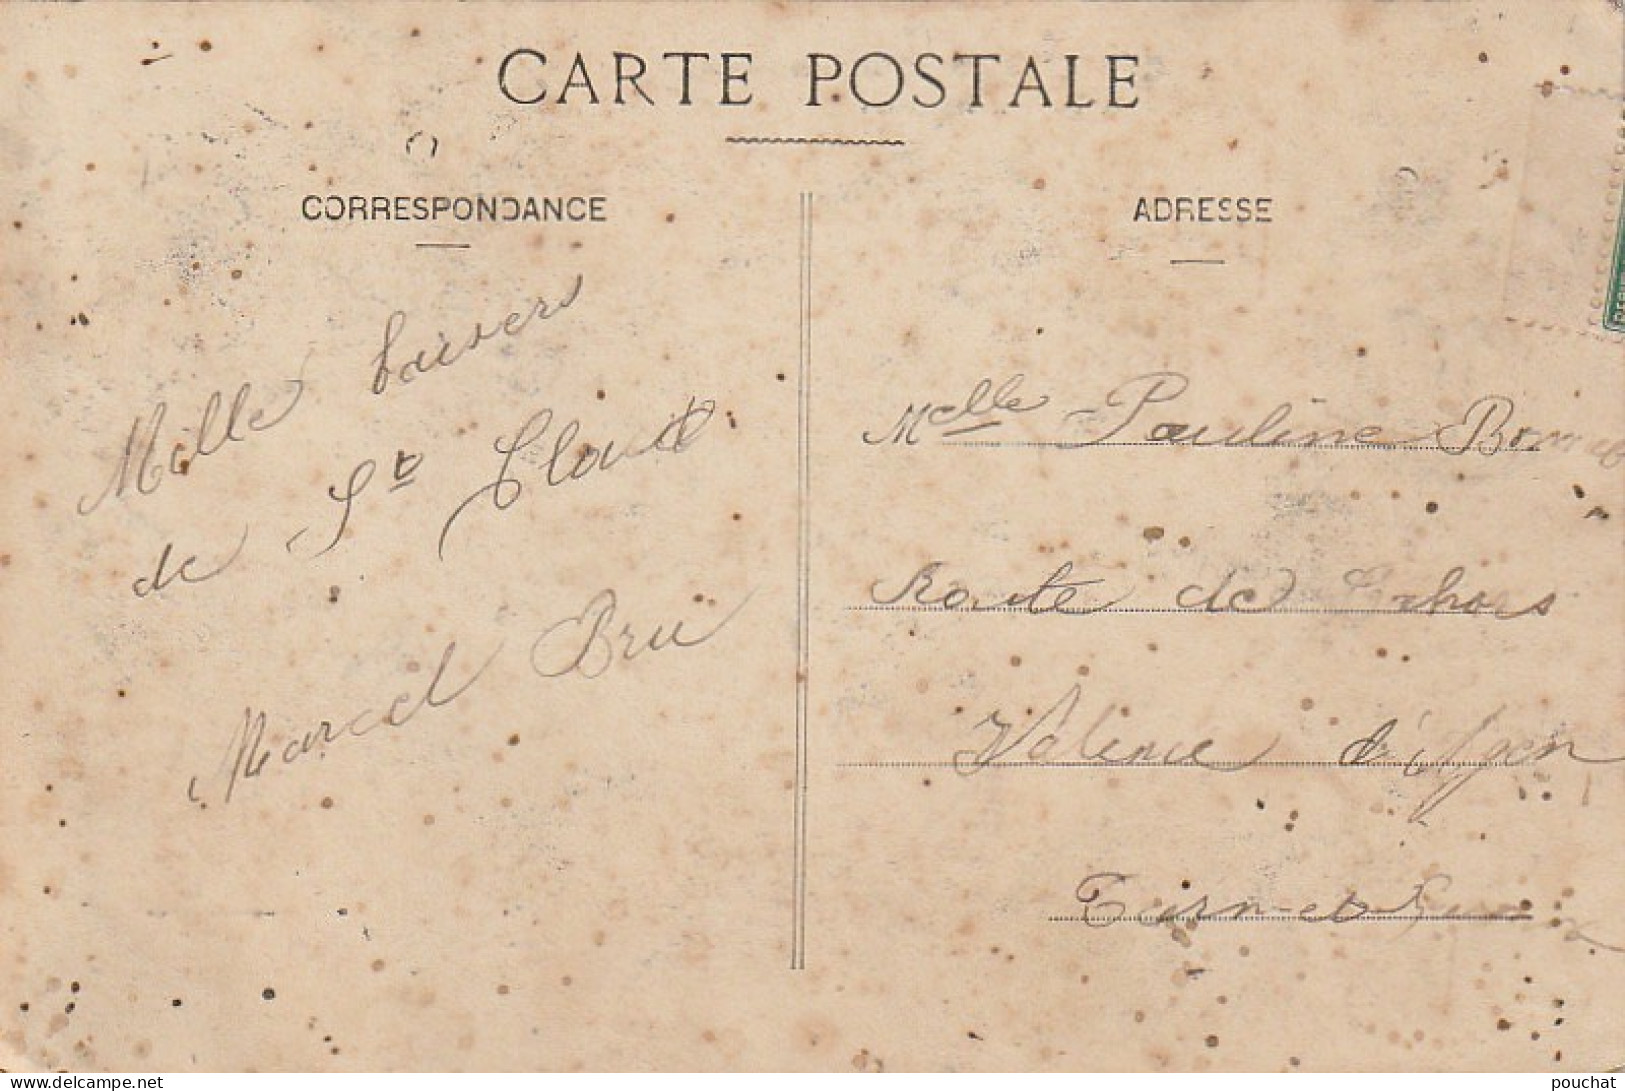 CARTE POSTALE
CORRESPONDANCE
ADRESSE
Mille baisers
de St Cloud
Marcel Bru
Melle Pauline
Route de Cahors
Valence d'Agen
Tarn-et-Garonne
delcampe.net
pouchat